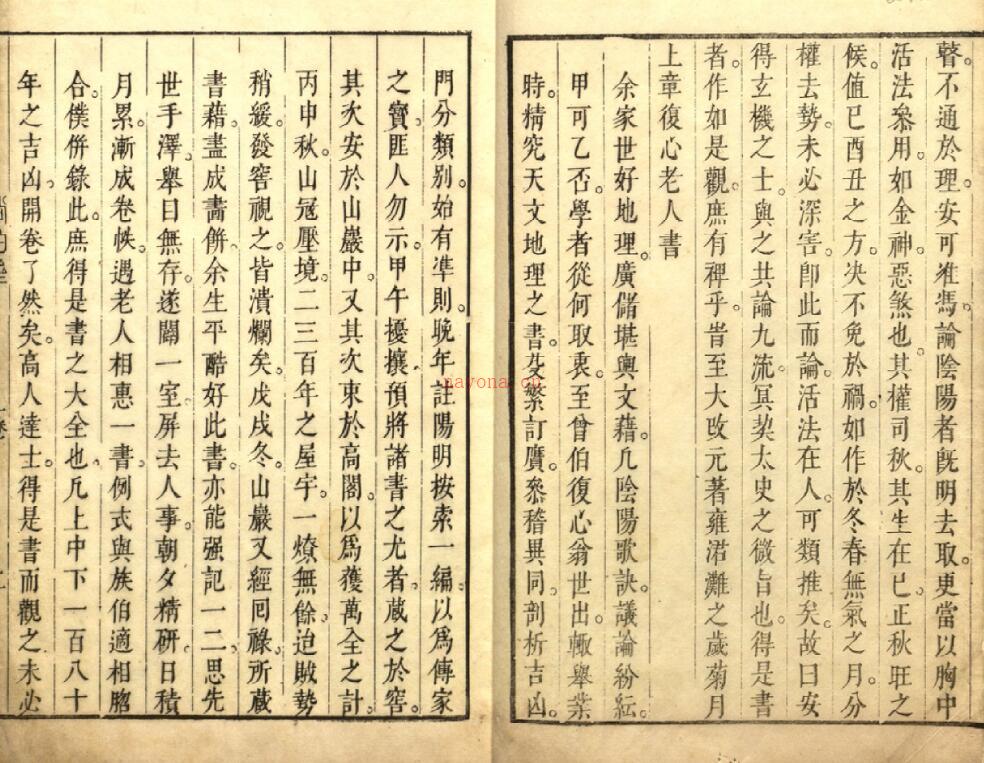 瞽不通於理安可准馮論陰陽者旣明去取更當以胸中
活法叅用如金神惡煞也其權司秋其生在巳正秋旺之
候值巳酉丑之方决不免於禍如作於冬春無氣之月分
權去勢未必深害卽此而論活法在人可類推矣故曰安
得玄機之士與之共論九流冥契太史之微旨也得是書
者作如是觀庶有裨乎旹至大攺元著雍涒灘之歲菊月
上章復心老人書
余家世好地理廣儲堪輿文藉凢陰陽歌訣議論紛紜
甲可乙否學者從何取衷至曾伯復心翁世出輙舉業
時精究天文地理之書芟繁訂贋叅稽異同剖析吉凶
門分類别始有準則晚年註陽明按索一編以爲傳家
之寶匪人勿示甲午擾攘預將諸書之尤者蔵之於窖
其次安於山巖中又其次束於高閣以爲獲萬全之計
丙申秋山冦壓境二三百年之屋宇一燎無餘迫賊勢
稍緩發窖視之皆潰爛矣戊戌冬山巖又經囘祿所蔵
書藉盡成畵餠余生平酷好此書亦能强記一二思先
世手澤舉目無存遂闢一室屏去人事朝夕精研日積
月累漸成卷帙遇老人相惠一書例式與族伯適相脗
合僕倂錄此庶得是書之大全也凢上中下一百八十
年之吉凶開卷了然矣高人達士得是書而觀之未必
nayona.cn